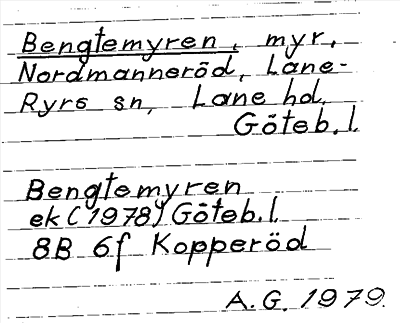 Bengtemyren, myr,
Nordmanneröd, Lane-
Ryrs sn, Lane hd.
Göteb.l.
Bengtemyren
ek (1978) Göteb.l.
8B 6f Kopperöd
A.G. 1979.